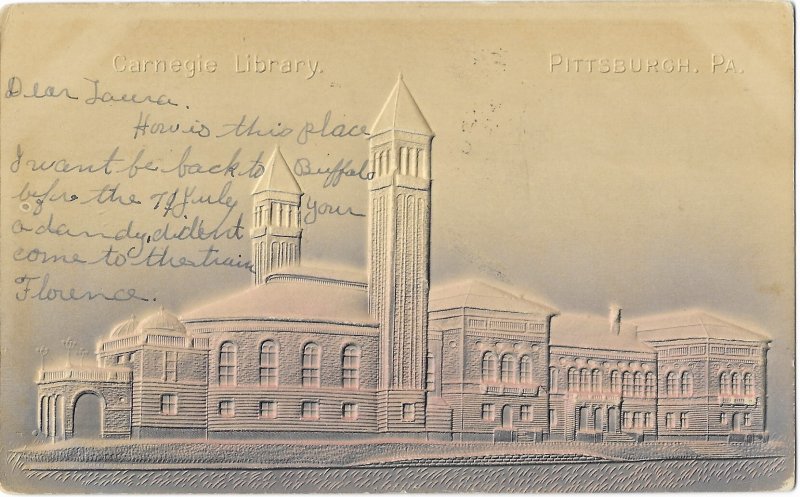 Carnegie Library.
PITTSBURGH. PA.
Dear Laura.
How is this place
I want be back to Buffalo
befre the 7 July Your
a dandy, dident
come to the train
Florence.